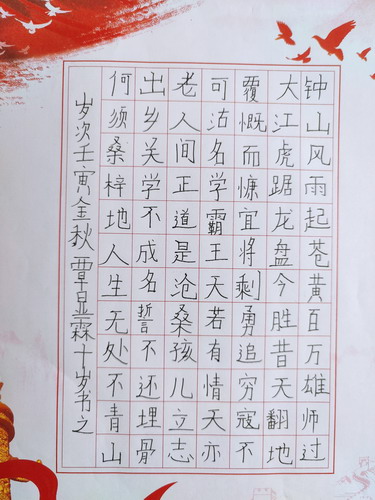 钟山风雨起苍黄百万雄师过
大江虎踞龙盘今胜昔天翻地
覆慨而慷宜将剩勇追穷寇不
可沽名学霸王天若有情天亦
老人间正道是沧桑孩儿立志
出乡关学不成名誓不还埋骨
何须桑梓地人生无处不青山
岁次壬寅金秋覃显霖十岁书之